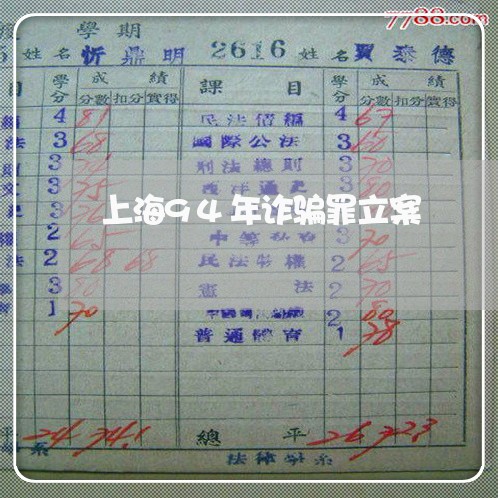 7788.com
學期
姓名 忻鼎明 2616 姓名 賈泰德
目 學分 成績 課目 學分 成績
分數 扣分 實得 分數 扣分 實得
4 81 民法債編 4 67
法 3 68 國際公法 3 60
3 刑法總則 3 70
3 75 西洋通史 3 80
上海94年诈骗罪立案
2 65 3 70
法 2 68 68 民法物權 2 65
3 80 憲法 2 70
1 70 2 80
普通體育 1 78
平 24 74.1 總平 26 72.3
系 法律學系